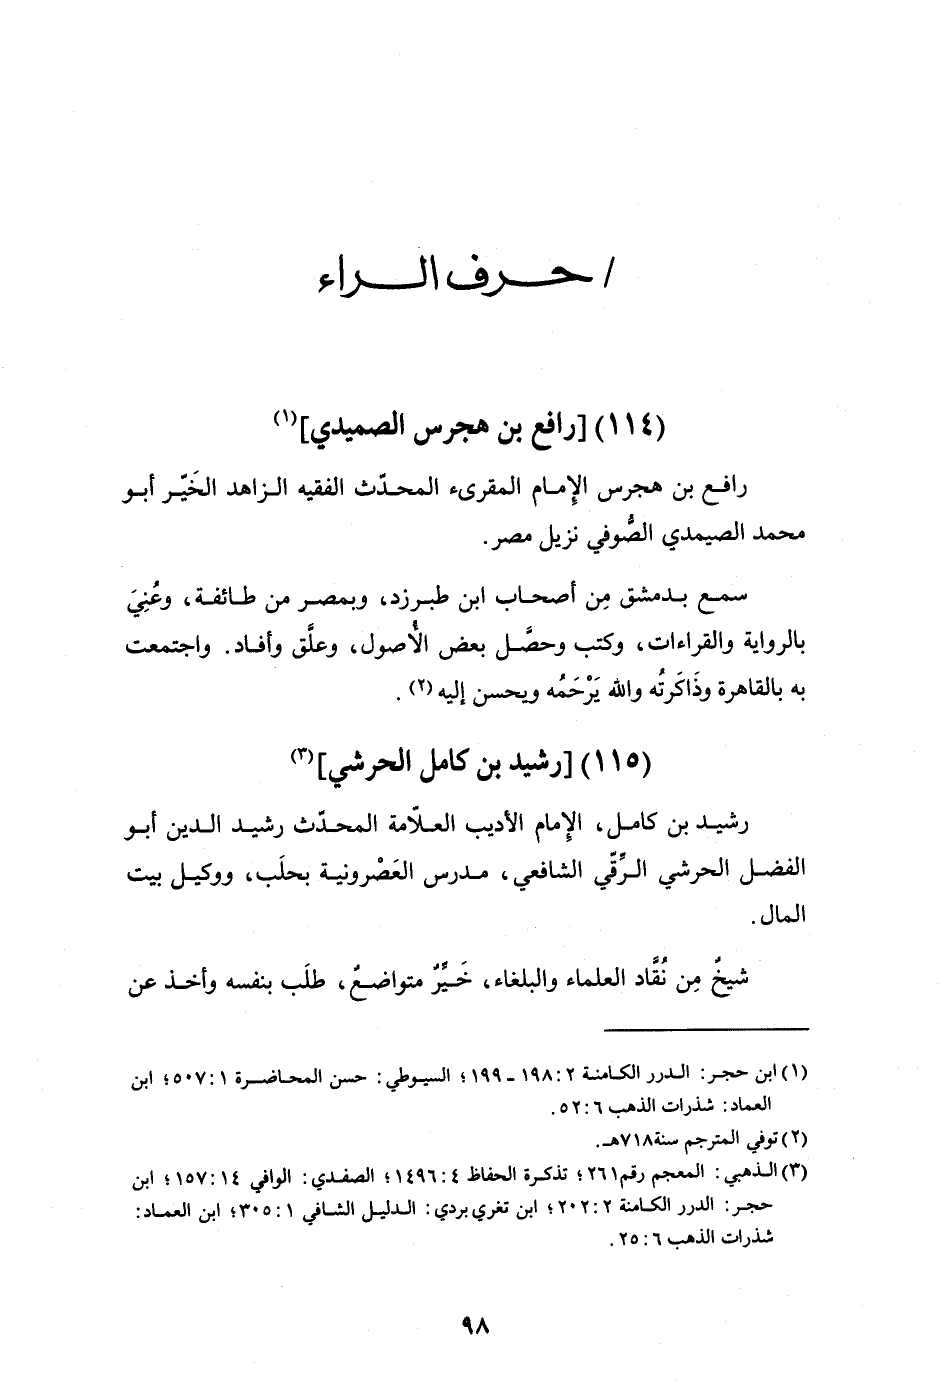 / حرف الراء
(١١٤) [رافع بن هجرس الصميدي](١)
رافع بن هجرس الإمام المقرىء المحدّث الفقيه الزاهد الخَيّر أبو
محمد الصيمدي الصُّوفي نزيل مصر.
سمع بدمشق مِن أصحاب ابن طبرزد، وبمصر من طائفة، وعُنِيَ
بالرواية والقراءات، وكتب وحصَّل بعض الأُصول، وعلَّق وأفاد. واجتمعت
به بالقاهرة وذَاكَرتُه والله يَرْحَمُه ويحسن إليه(٢).
(١١٥) [رشيد بن كامل الحرشي](٣)
رشيد بن كامل، الإمام الأديب العلّامة المحدّث رشيد الدين أبو
الفضل الحرشي الرِّقّي الشافعي، مدرس العَصْرونية بحلَب، ووكيل بيت
المال.
شيخٌ مِن نُقَّاد العلماء والبلغاء، خَيِّرٌ متواضعٌ، طلَب بنفسه وأخذ عن
(١) ابن حجر: الدرر الكامنة ٢: ١٩٨ ـ ١٩٩؛ السيوطي: حسن المحاضرة ١: ٥٠٧؛ ابن
العماد: شذرات الذهب ٦: ٥٢.
(٢) توفي المترجم سنة ٧١٨هـ.
(٣) الذهبي: المعجم رقم ٢٦١؛ تذكرة الحفاظ ٤: ١٤٩٦؛ الصفدي: الوافي ١٤: ١٥٧؛ ابن
حجر: الدرر الكامنة ٢: ٢٠٢؛ ابن تغري بردي: الدليل الشافي ١: ٣٠٥؛ ابن العماد:
شذرات الذهب ٦: ٢٥.
٩٨